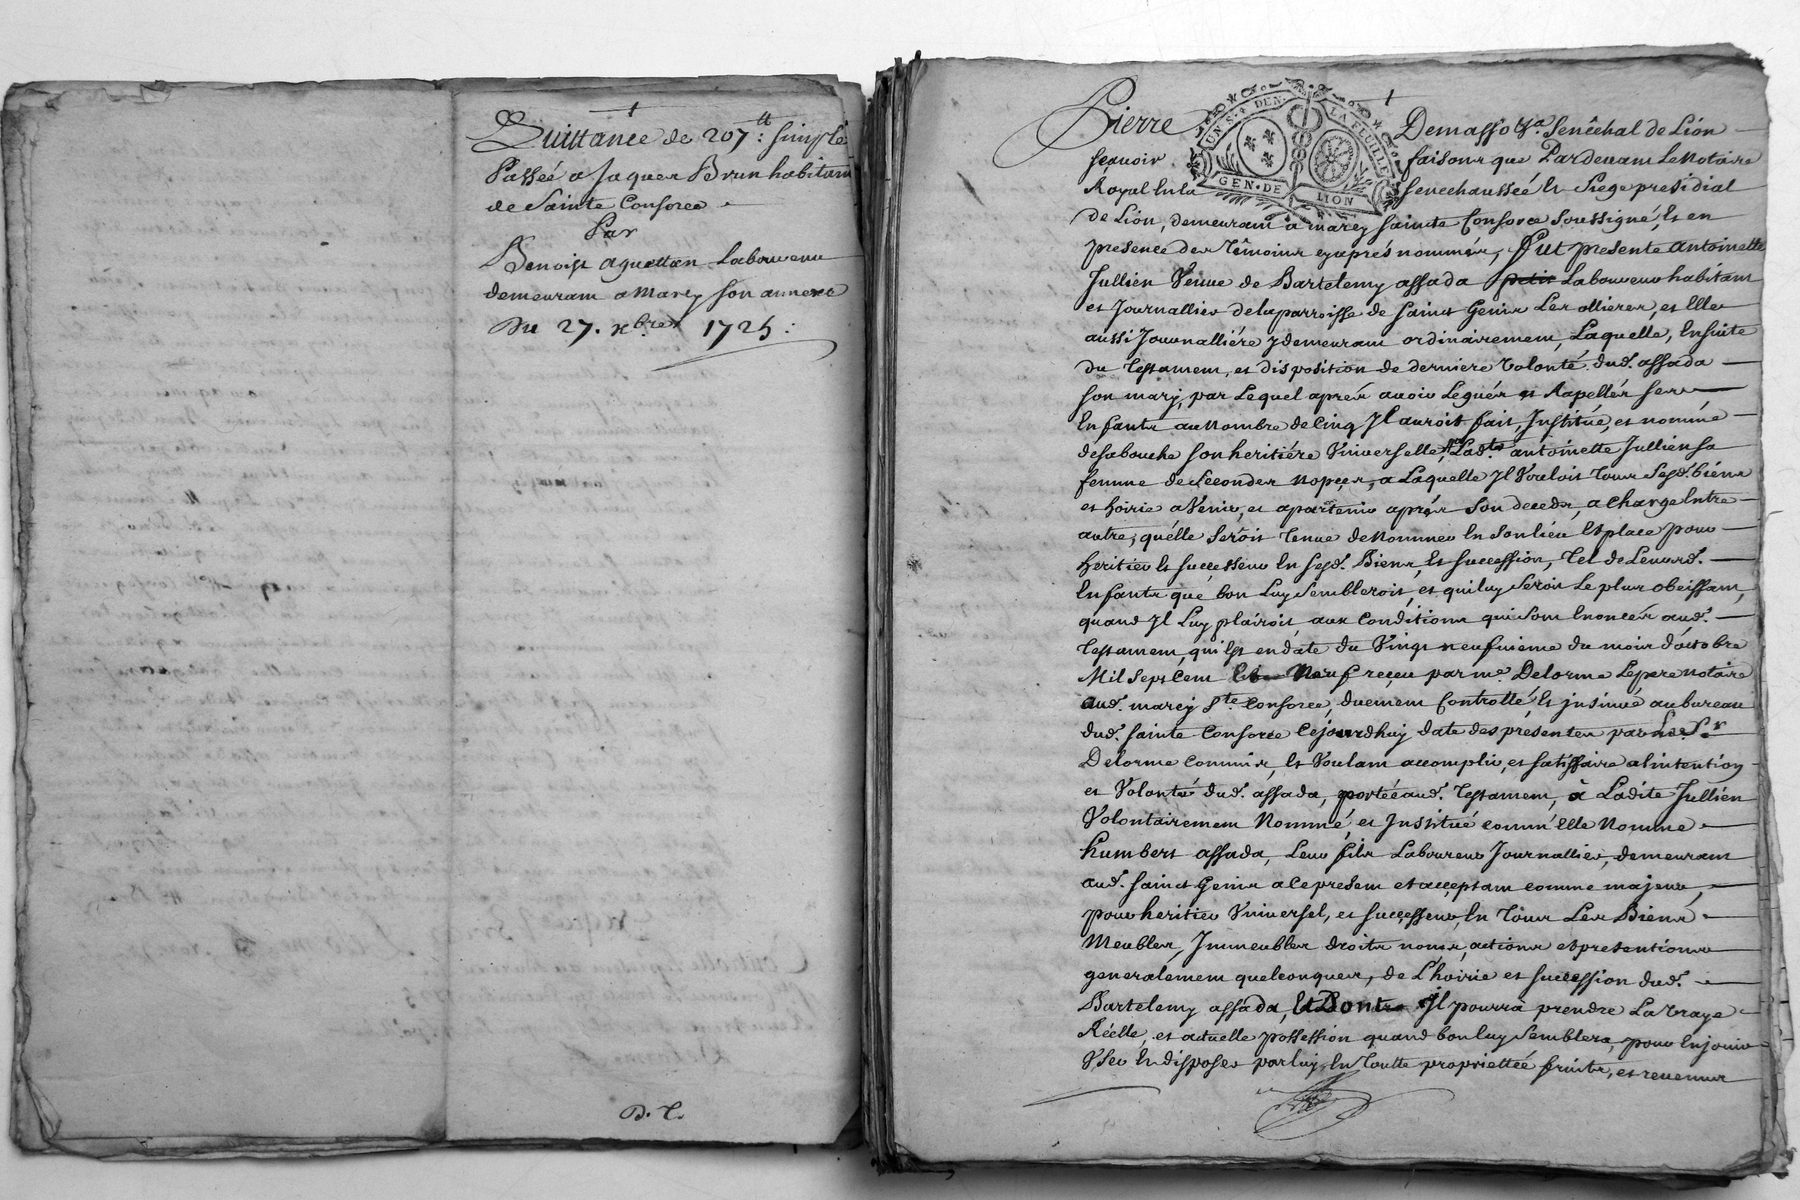 Quittance de 207 tt: simple
Passée a Jaques Brun habitant
de Sainte Consorce
Par
Benoist aguettan Laboureur
demeurant a Marcy son annexe
Du 27. xbres 1725:
D. C.
Pierre Demasso &a. Senêchal de Lion
UN. S. 4 DEN. LA FEUILLE
GEN. DE LION
sçauoir faisons que Pardeuant Le Notaire
Royal En La Senechaussée Et Siege presidial
de Lion, demeurant a marcy sainte Consorce Soussigné, Et en
presence des Têmoins cyaprés nommés, Fut presente antoinette
Jullien Veuue de Bartelemy assada petit Laboureur habitant
et Journallier de la parroisse de sainct Genis Les ollieres, et Elle
aussi Journalliére y demeurant ordinairement, Laquelle, Ensuite
du Testament, et disposition de derniere Volonté dud. assada
son mary, par Lequel aprés auoir Legués et Rapellés ses
Enfants au Nombre de Cinq Jl auroit fait, Jnstitué, et nommé
desabouche son heritiére Vniuerselle, Lad.te antoinette Jullien sa
femme de Secondes Nopçes, a Laquelle Jl Vouloit tous Sesd. biens
et hoirie a Venir, et apartenir aprés son deceds, a Charge Entre
autre, quélle Seroit tenue de Nommer En Son lieu Et place pour
Heritier Et successeur En sesd. Biens, Et succession, tel de Leursd.
Enfants que bon Luy Sembleroit, et quiluy Seroit Le plus obeissant,
quand Jl Luy plairoit, aux Conditions qui sont Enoncés aud.
Testament, qui Est en date du Vingt neufuieme du mois d'octobre
Mil Sept Cent Neuf reçeu par me. Delorme Le pere notaire
aud. marcy s.te Consorce, duement Controllé, Et jnsinué au bureau
dud. sainte Consorce Cejourdhuy date des presentes par Le Sr
Delorme Commis, Et Voulant accomplir, et satisfaire al'intention
et Volonté dud. assada, portée aud. Testament, à Ladite Jullien
Volontairement Nommé, et Jnstitué comm'elle Nomme
Humbert assada, Leur fils Laboureur Journallier, demeurant
aud. sainct Genis a Ce present et acçeptant comme majeur,
pour heritier Vniuersel, et suçcesseur, En tous Les Biens
Meubles, Jmmeubles droits noms, actions et pretentions
generalement quelconques, de L'hoirie et succession dud.
Bartelemy assada, Et Dont Jl pourra prendre La Vraye
Réelle, et actuelle possession quand bon luy Semblera, pour En jouir
Vser En disposer par luy, En toutte proprietteé fruits, et reuenus